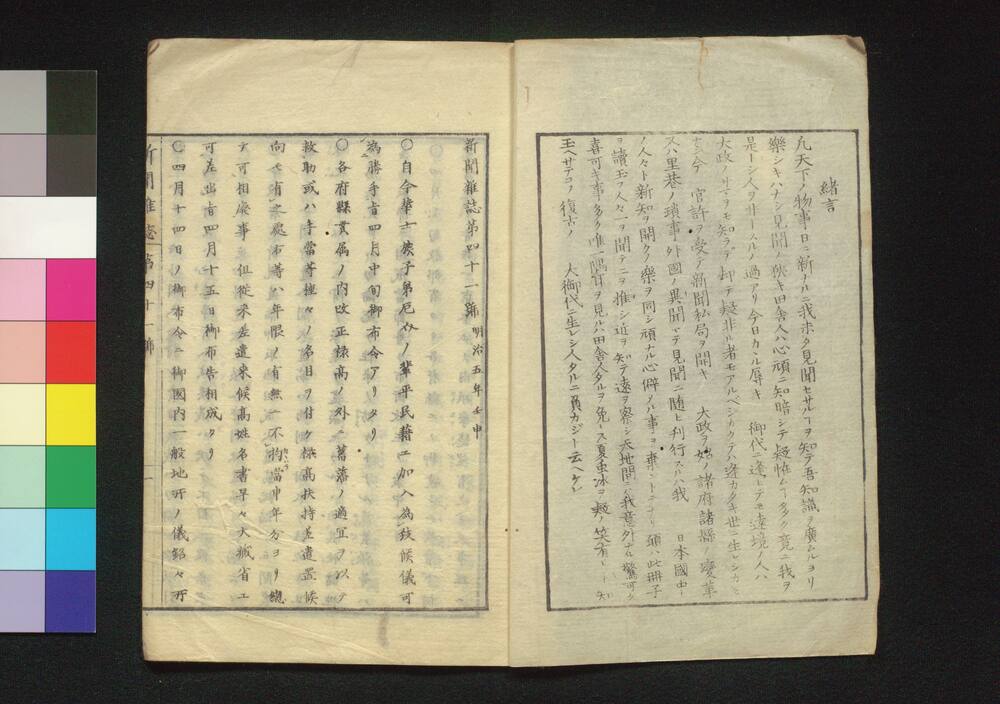 緒言
凡天下ノ物事日ニ新ノルニ我未タ見聞セサルヿヲ知テ吾知識ヲ廣ムルヨリ
樂シキハナシ見聞ノ狹キ田舎人ハ心頑ニ知暗シテ疑惟ムヿ多ク竟ニ我ヲ
是トシ人ヲ非トスルノ過アリ今日カヽル辱キ 御代ニ逢ヒテモ遠境ノ人ハ
大政ノサマヲモ知ラデ却テ疑非ル者モアルベシカクテハ逢カタキ世ニ生レシカヒ
官許ヲ受テ新聞私局ヲ開キ 大政ヲ始メ諸府諸縣ノ變革
又ハ里巷ノ瑣事外國ノ異聞マデ見聞ニ随ヒ刊行スルハ我 日本國中
ノ人々ト新知ヲ開クノ樂ヲ同シ頑ナル心僻メル事ヲ棄ントニナリ願ハ此冊子
ヲ讀玉フ人々一ヲ聞テ二ヲ推シ近ヲ知テ遠ヲ察シ天地間ニ我意外ナル驚可ク
喜可キ事多ク唯一隅耳ヲ見ルハ田舎人タルヲ免レス夏虫冰ヲ疑ノ笑有ヿヲ知
玉ヘサテコソ復古ノ 大御代ニ生レシ人タルニ負カジト云ヘケレ
新聞雜誌第四十一號 明治五年壬申
〇自今華士族子弟厄介ノ輩平民籍ニ加入為致候儀可
為勝手旨四月中旬御布令アリタリ
〇各府縣貫属ノ内改正禄高ノ外ニ舊藩ノ適宜ヲ以テ
救助或ハ手當等種々ノ名目ヲ付ケ稟高扶持差遣置候
向モ有之處右等ハ年限ノ有無ニ不拘當申年分ヨリ總
テ可相廢事 但從来差遣来候高姓名書早々大蔵省エ
可差出旨四月十五日御布告相成タリ
〇四月十四日ノ御布令ニ御國内一般地所ノ儀銘々所
新聞雜誌第四十一號
一